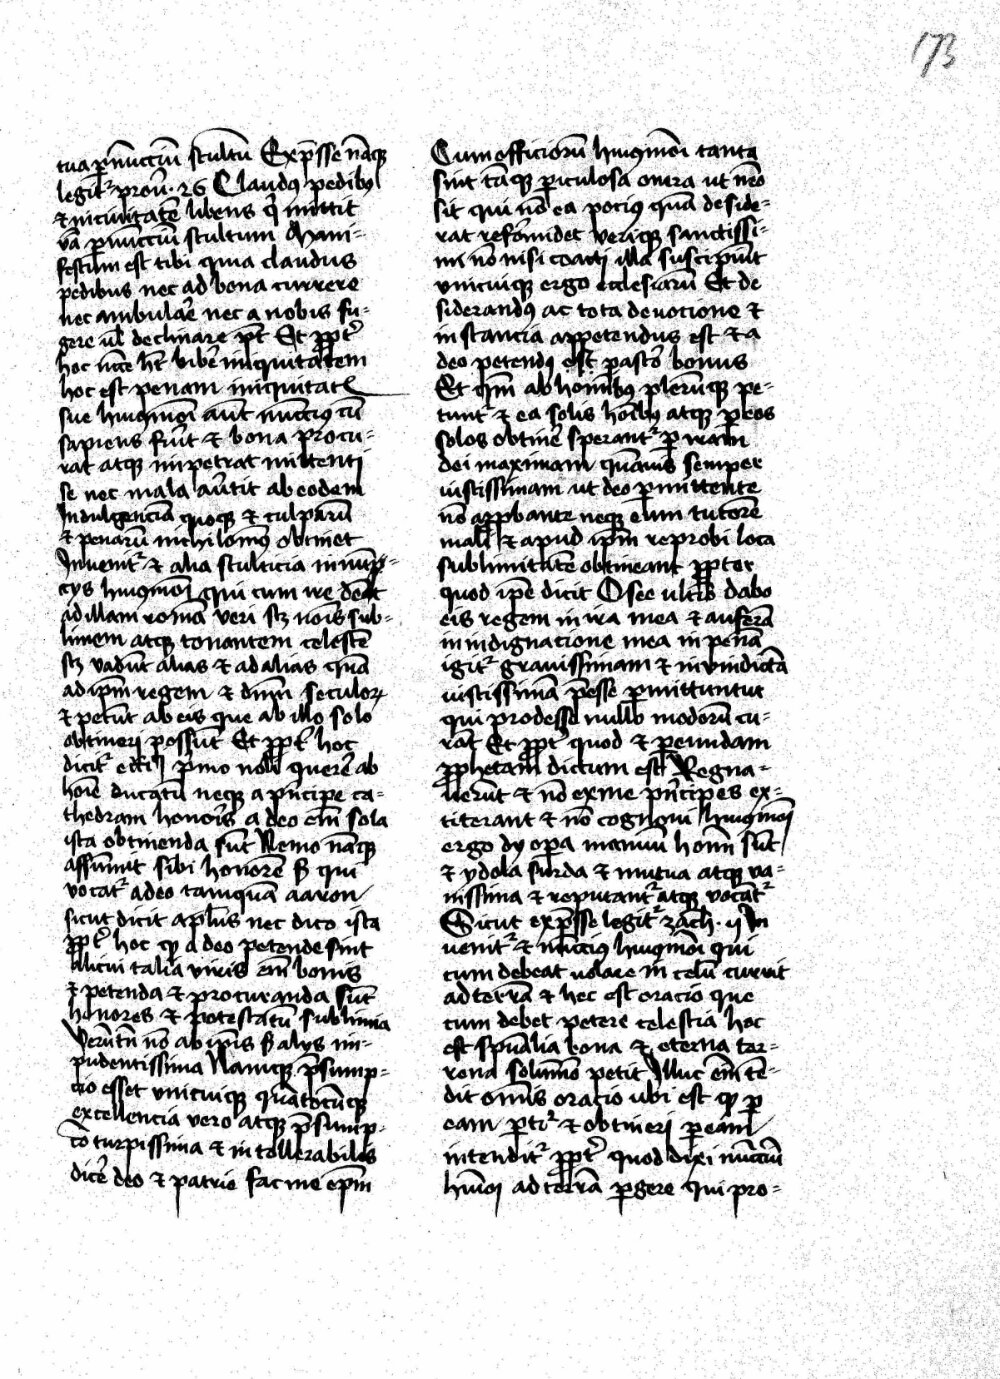 173
tua ꝑ nūcciū stultū Exp̄sse nāqꝫ
legit᷑ prou̾ · 26 Claudꝰ pedibꝰ
& iniquitatē bibens q̇ mittit
v̾ba ꝑ nūcciū stultum Mani-
festum est tibi quia claudus
pedibus nec ad bona currere
nec ambulare nec a nobis fu-
gere ul̄ declinare pōt Et ꝓpt̾
hoc nēcē hēt bibere iniquitatem
hoc est penam iniquitatis
sue huiꝰmōi aut nūcciꝰ cū
sapiens fuīt & bona procu-
rat atqꝫ impetrat mittenti
se nec mala au̾tit ab eodem
Indulgenciā quoqꝫ & culparū
& penarū nichilomīꝰ obtinet
Inuenit᷑ & alia stulticia in nūcp-
cijs huiꝰmōi qui cum ire debent
ad illam romā veri sꝫ nōis sub-
limem atqꝫ tonantem celestē
sꝫ vadūt alias & ad alias quā
ad ipm̄ regem & dnm̄ seculoꝝ
& petūt ab eis que ab illo solo
obtineri possūt Et ꝓpt̾ hoc
dicit᷑ eccī 7 Noli querere ab
hoīe ducatū neqꝫ a prīcipe ca-
thedram honoris a deo em̄ sola
ista obtinenda sūt Nemo nāqꝫ
assumit sibi honorē s̄ qui
vocat᷑ a deo tamquā aaron
sicut dicit aplūs nec dico ista
ꝓpt̾ hoc qꝫ a deo petende sint
alicui talia viris em̄ bonis
& petenda & procuranda sūt
honores & potestatū sublimia
Verūtn̄ nō ab ipīs s̄ alijs im-
pudentissima Namqꝫ p̄sump-
cio esset vnicuiqꝫ quātocūqꝫ
excellencia vero atqꝫ p̄sump-
cō turpissima & intollerabilis
dice̾ deo & patrie fac me epm̄
Cum officiorū huiꝰmōi tanta
sint tāqꝫ ꝑiculosa onera ut nēo
sit qui nō ea pocius quā deside-
rat reformidet veriqꝫ sanctissi-
mi nō nisi coacti illa suscipiūt
vnicuiqꝫ ergo ecclesiarū Et de
siderandꝰ ac tota deuocione &
instancia appetendus est & a
deo petendꝰ est pastor bonus
Et qm̄ ab hominibꝰ plerūqꝫ pe-
tunt᷑ & ea solis hoībꝰ atqꝫ ꝑ eos
solos obtinē sperant᷑ ꝑ iram
dei maximam quāuis semper
iustissimam ut deo ꝑmittente
nō approbante neqꝫ eum tutorē
mali & apud ipm̄ reprobi loca
sublimitatē obtineant ꝓpter
quod ipē dicit Osee ultīo dabo
eis regem in ira mea & auferā
in indignacione mea in penā
igit᷑ grauissimam & in vindictā
iustissimā p̄esse ꝑmittuntur
qui prodesse nullo modorū cu-
rāt Et ꝓpt̾ quod & ꝑ eundam
ꝓphetam dictum est Regna-
uerūt & nō ex me prīcipes ex-
titerant & nō cognoui huiꝰmōi
ergo dij opera manuū homī sūt
& ydola surda & mutua atqꝫ va-
nissima & reputant᷑ atqꝫ vocāt᷑
Sicut exp̄sse legit᷑ zach · ij In
uenit᷑ & nūcciꝰ huiꝰmōi qui
cum debeat uolare in celū currit
ad terrā & hec est oracio que
cum debet petere celestia hoc
est spūalia bona & eterna ter-
rena solūmō petit Illuc em̄ ten-
dit omīs oracio ubi est qꝫ ꝑ
eam peti᷑ & obtineri ꝑ eam
intendit᷑ ꝓpt̾ quod dixi nūcciū
hmōi ad terrā ꝑgere qui pro-